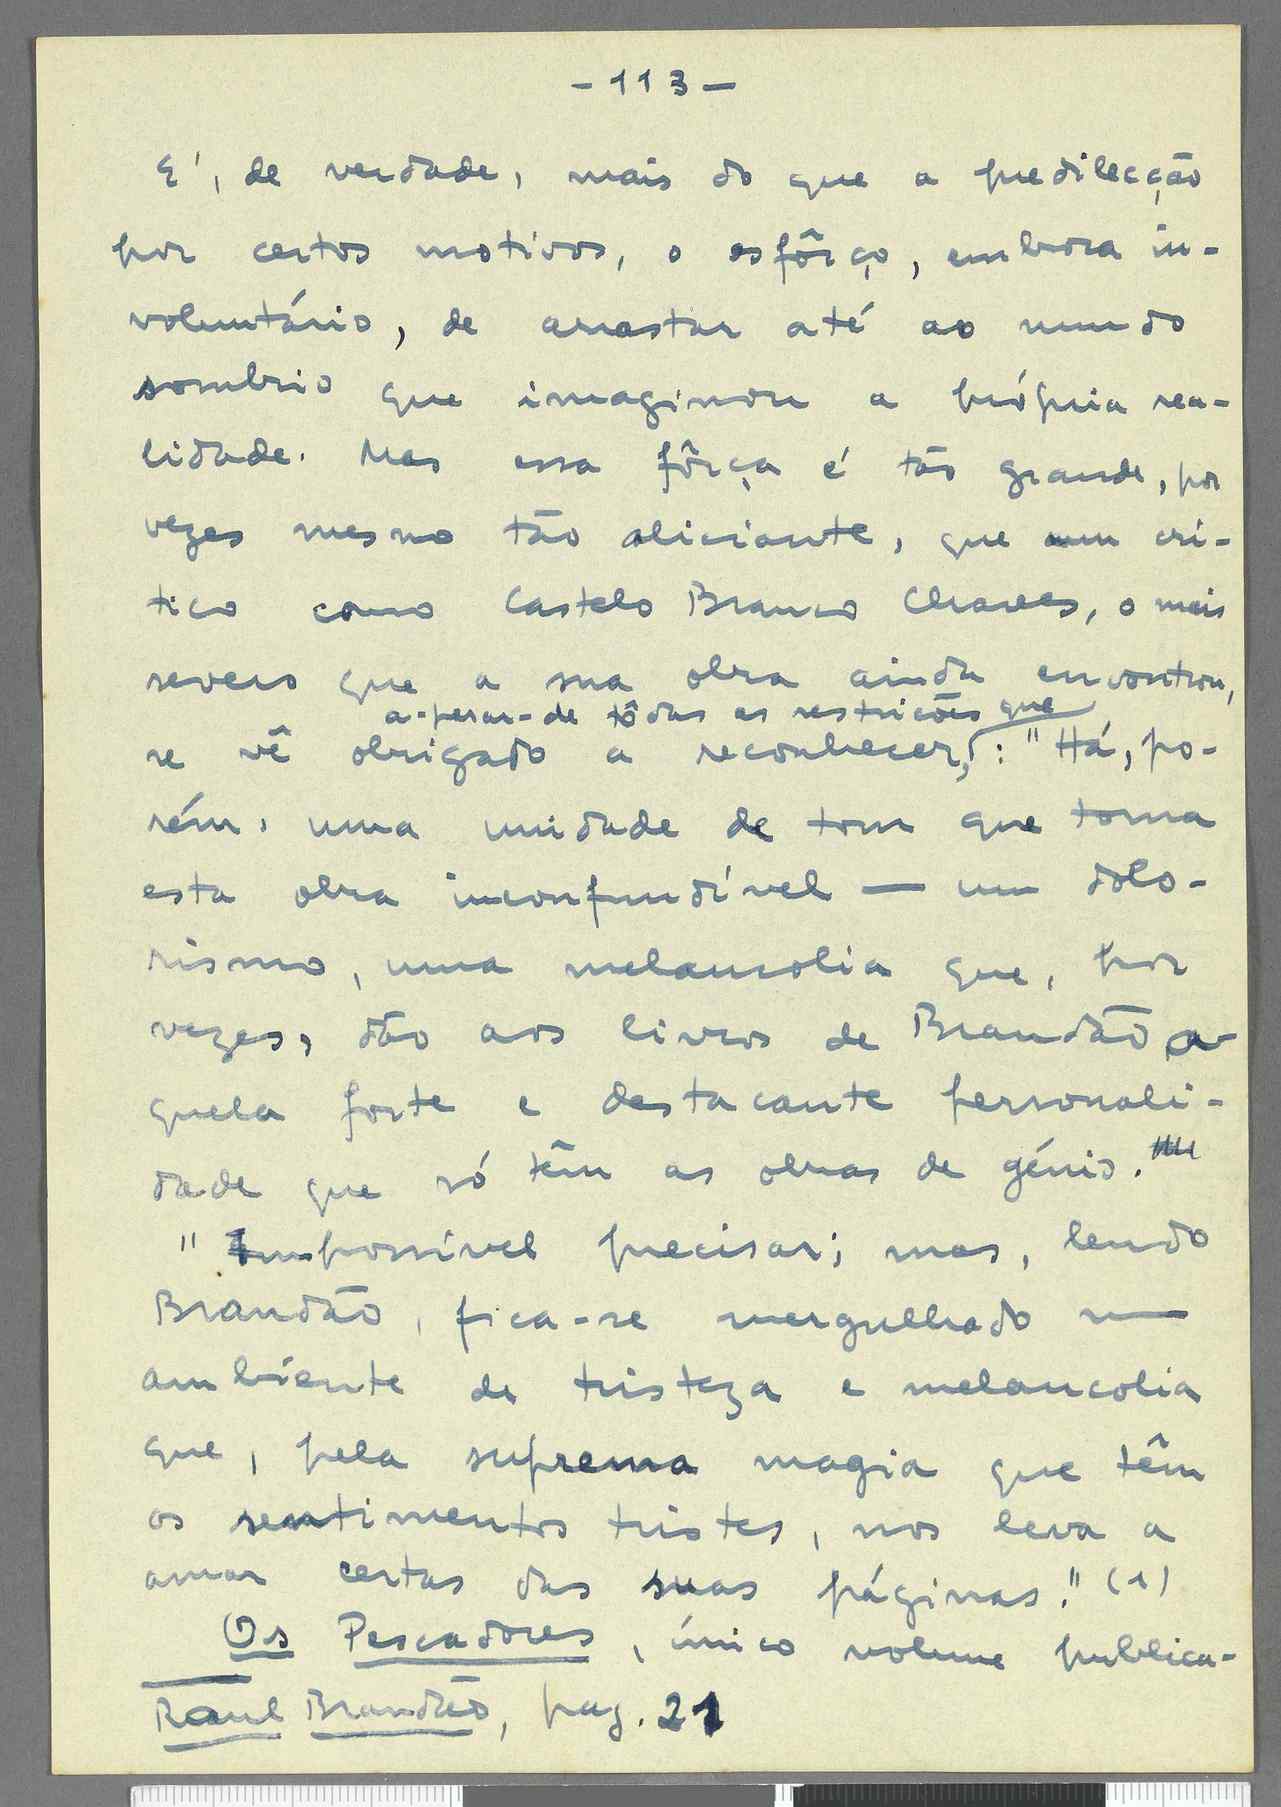 - 113 -
E', de verdade, mais do que a predilecção
por certos motivos, o esfôrço, embora in-
voluntário, de arrastar até ao mundo
sombrio que imaginou a própria rea-
lidade. Mas essa fôrça é tão grande, por
vezes mesmo tão aliciante, que um crí-
tico como Castelo Branco Chaves, o mais
severo que a sua obra ainda encontrou,
a-pesar-de tôdas as restrições que
se vê obrigado a reconhecer, : "Há, po-
rém, uma unidade de tom que torna
esta obra inconfundível — um dolo-
rismo, uma melancolia que, por
vezes, dão aos livros de Brandão a-
quela forte e destacante personali-
dade que só têm as obras de génio.
"Impossível precisar; mas, lendo
Brandão, fica-se mergulhado num
ambiente de tristeza e melancolia
que, pela suprema magia que têm
os sentimentos tristes, nos leva a
amar certas das suas páginas." (1)
Os Pescadores, único volume publica-
Raul Brandão, pag. 21